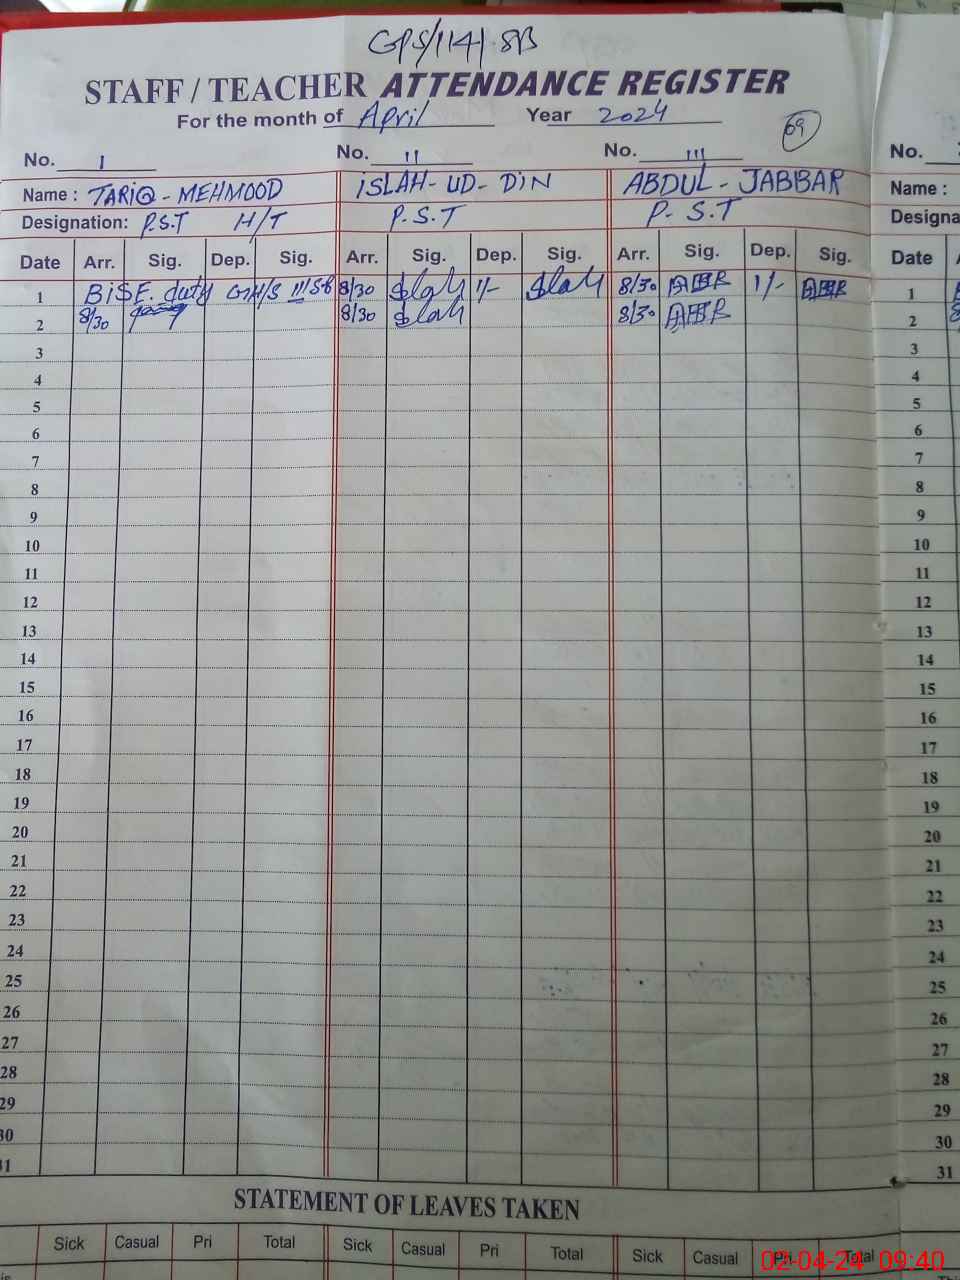 GPS/114/SB
STAFF / TEACHER ATTENDANCE REGISTER
For the month of April Year 2024
69
No. I No. II No. III No.
Name : TARIQ - MEHMOOD ISLAH - UD - DIN ABDUL - JABBAR Name :
Designation: P.S.T H/T P.S.T P. S.T Designa
Date Arr. Sig. Dep. Sig. Arr. Sig. Dep. Sig. Arr. Sig. Dep. Sig. Date
1 BISE. duty GHS 111/SB 8/30 Islah 1/- Islah 8/30 1/- 1
2 8/30 8/30 Islah 8/30 2
3 3
4 4
5 5
6 6
7 7
8 8
9 9
10 10
11 11
12 12
13 13
14 14
15 15
16 16
17 17
18 18
19 19
20 20
21 21
22 22
23 23
24 24
25 25
26 26
27 27
28 28
29 29
30 30
31 31
STATEMENT OF LEAVES TAKEN
Sick Casual Pri Total Sick Casual Pri Total Sick Casual Pri Total
02-04-24 09:40